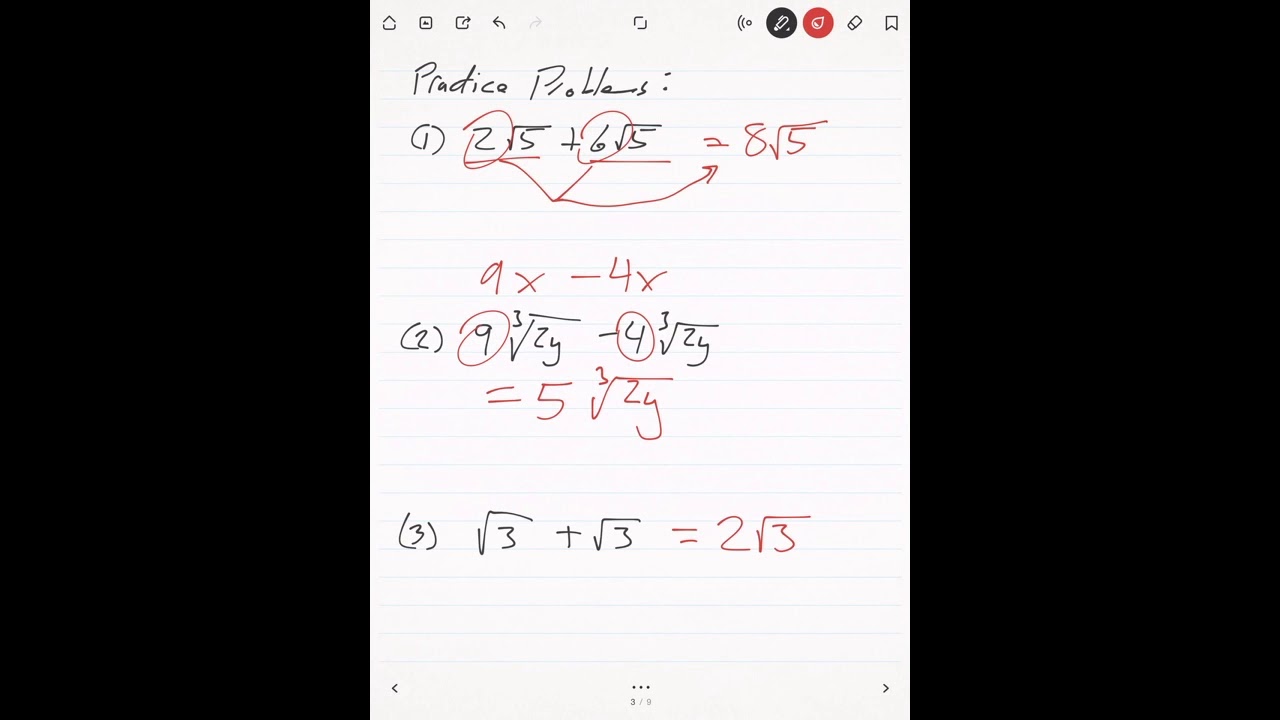 Practice Problems:
(1) 2√5 + 6√5 = 8√5
9x - 4x
(2) 9∛2y - 4∛2y
= 5 ∛2y
(3) √3 + √3 = 2√3
3 / 9